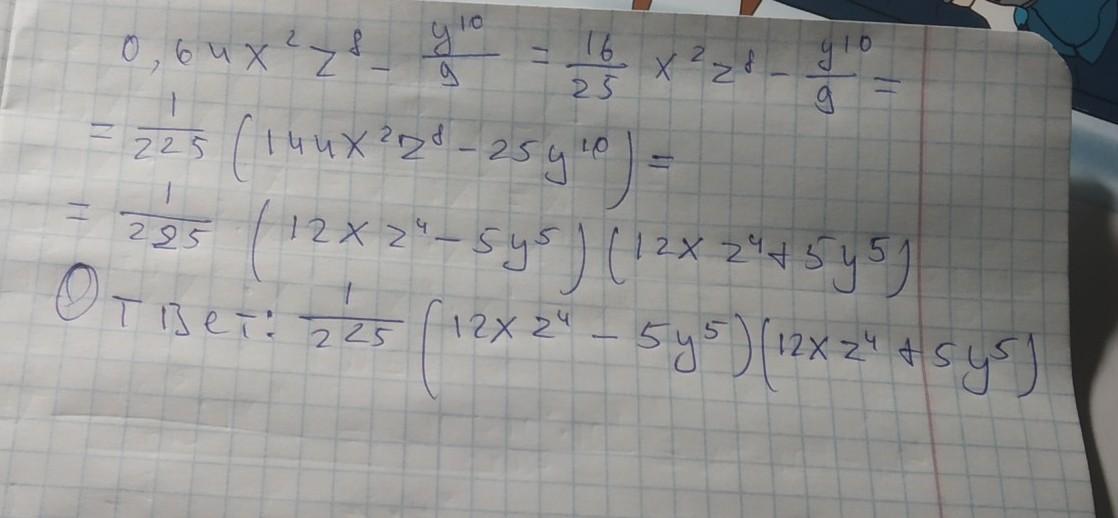 0,64x²z⁸ - y¹⁰/9 = 16/25 x²z⁸ - y¹⁰/9 =
= 1/225 (144x²z⁸ - 25y¹⁰) =
= 1/225 (12xz⁴ - 5y⁵)(12xz⁴ + 5y⁵)
Ответ: 1/225 (12xz⁴ - 5y⁵)(12xz⁴ + 5y⁵)